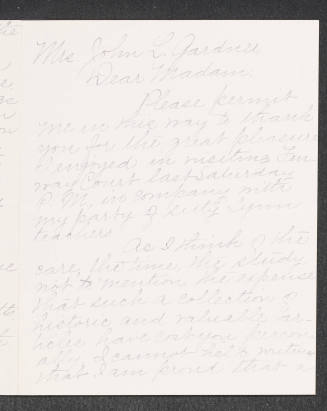 Mrs. John L. Gardner
Dear Madam:
Please permit
me in this way to thank
you for the great pleasure
I enjoyed in visiting Fen-
way Court last Saturday
P.M. in company with
my party of sixty Lynn
teachers.
As I think of the
care, the time, the study
not to mention the expense
that such a collection of
historic and valuable ar-
ticles have cost you person-
ally, I cannot help writing
that I am proud that a